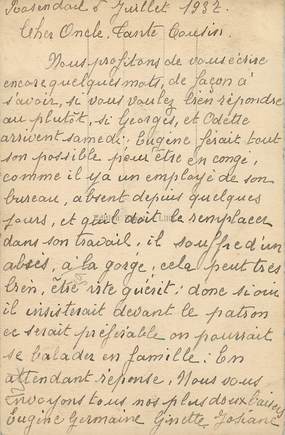 Rosendael 5 Juillet 1932.
Cher Oncle. Tante Cousin.
Nous profitons de vous écrire
encore quelques mots, de façon à
savoir, si vous voulez bien répondre
au plutôt, si Georges, et Odette
arrivent samedi; Eugène ferait tout
son possible pour être en congé,
comme il y a un employé de son
bureau, absent depuis quelques
jours, et qu'il doit le remplacer
dans son travail, il souffre d'un
absés, à la gorge, cela peut très
bien, être vite guérit; donc si oui
il insisterait devant le patron
ce serait préférable on pourrait
se balader en famille. En
attendant réponse, Nous vous
envoyons tous nos plus doux baisers
Eugène Germaine Ginette Josiane